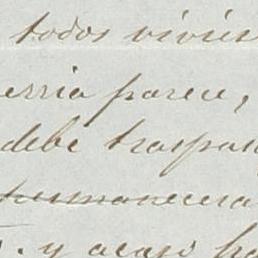 todos vivie
erria parece,
debe traspas
permanecera
. y acaso ha